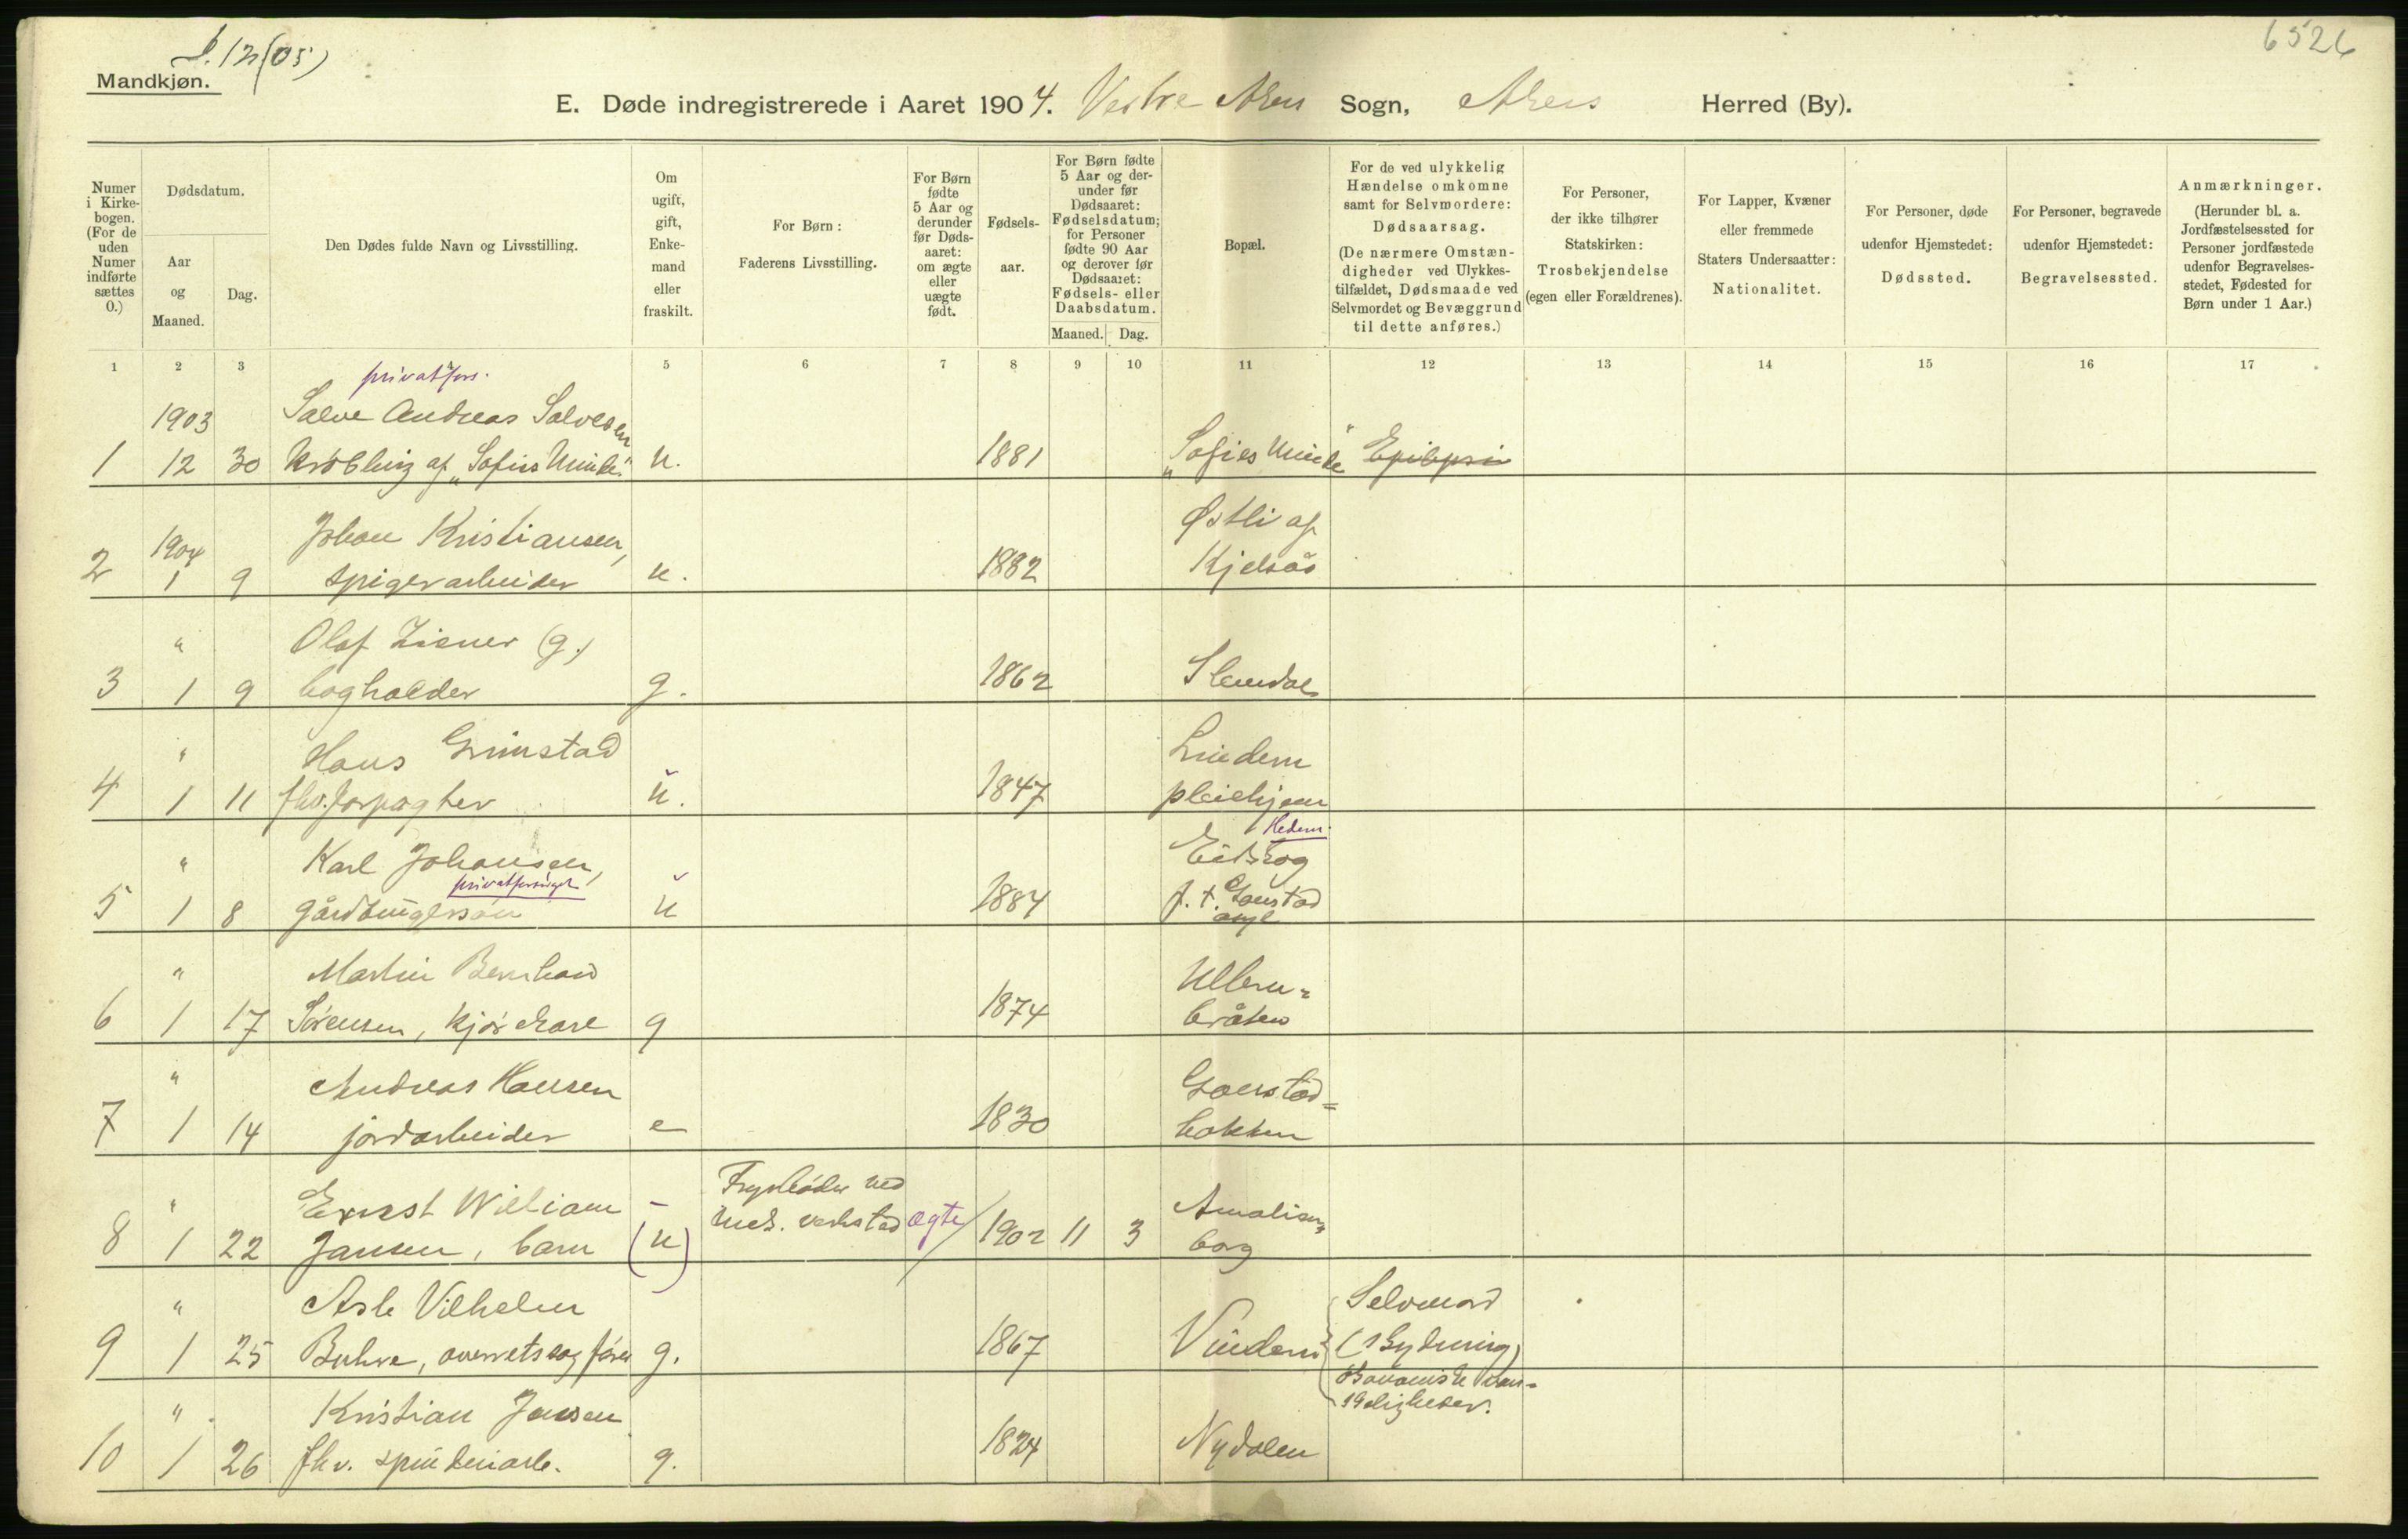 6526
12/05)
Mandkjøn.
E. Døde indregistrerede i Aaret 1904. Vestre Akers Sogn, Akers Herred (By).
Numer i Kirkebogen. (For de uden Numer indførte sættes 0.)
Dødsdatum.
Aar og Maaned.
Dag.
Den Dødes fulde Navn og Livsstilling.
Om ugift, gift, Enkemand eller fraskilt.
For Børn: Faderens Livsstilling.
For Børn fødte 5 Aar og derunder før Dødsaaret: om ægte eller uægte født.
Fødselsaar.
For Børn fødte 5 Aar og derunder før Dødsaaret: Fødselsdatum; for Personer fødte 90 Aar og derover før Dødsaaret: Fødsels- eller Daabsdatum.
Maaned. Dag.
Bopæl.
For de ved ulykkelig Hændelse omkomne samt for Selvmordere: Dødsaarsag. (De nærmere Omstændigheder ved Ulykkestilfældet, Dødsmaade ved Selvmordet og Bevæggrund til dette anføres.)
For Personer, der ikke tilhører Statskirken: Trosbekjendelse (egen eller Forældrenes).
For Lapper, Kvæner eller fremmede Staters Undersaatter: Nationalitet.
For Personer, døde udenfor Hjemstedet: Dødssted.
For Personer, begravede udenfor Hjemstedet: Begravelsessted.
Anmærkninger. (Herunder bl. a. Jordfæstelsessted for Personer jordfæstede udenfor Begravelsesstedet, Fødested for Børn under 1 Aar.)
1 2 3 4 5 6 7 8 9 10 11 12 13 14 15 16 17
privatfors.
1903 Salve Andreas Salvesen
1 12 30 Krøbling af "Sofies Minde" u. 1881 "Sofies Minde" Epilepsi
1904 Johan Kristiansen, Østli af
2 1 9 spigerarbeider u. 1882 Kjelsås
" Olaf Zisner (g.)
3 1 9 bogholder g. 1862 Slemdal
" Hans Grimstad Lindern
4 1 11 fhv. forpagter u. 1847 pleiehjem
Hedem.
" Karl Johansen, Eidskog
privatforsørget
5 1 8 gårdbrugersøn u 1884 f. t. Gaustad asyl
" Martin Bernhard Ullern-
6 1 17 Sørensen, kjørekarl g 1874 bråten
" Andreas Hansen Gaustad-
7 1 14 jordarbeider e 1830 bakken
" Ernest William – Fyrbøder ved Amalien-
8 1 22 Jansen, barn (u) mek. verksted ægte 1902 11 3 borg
" Asle Vilhelm Selvmord
9 1 25 Buhre, overretssagfører g. 1867 Vindern (skydning)
økonomiske van-
skeligheder.
" Kristian Jensen
10 1 26 fhv. spinneriarb. g. 1824 Nydalen